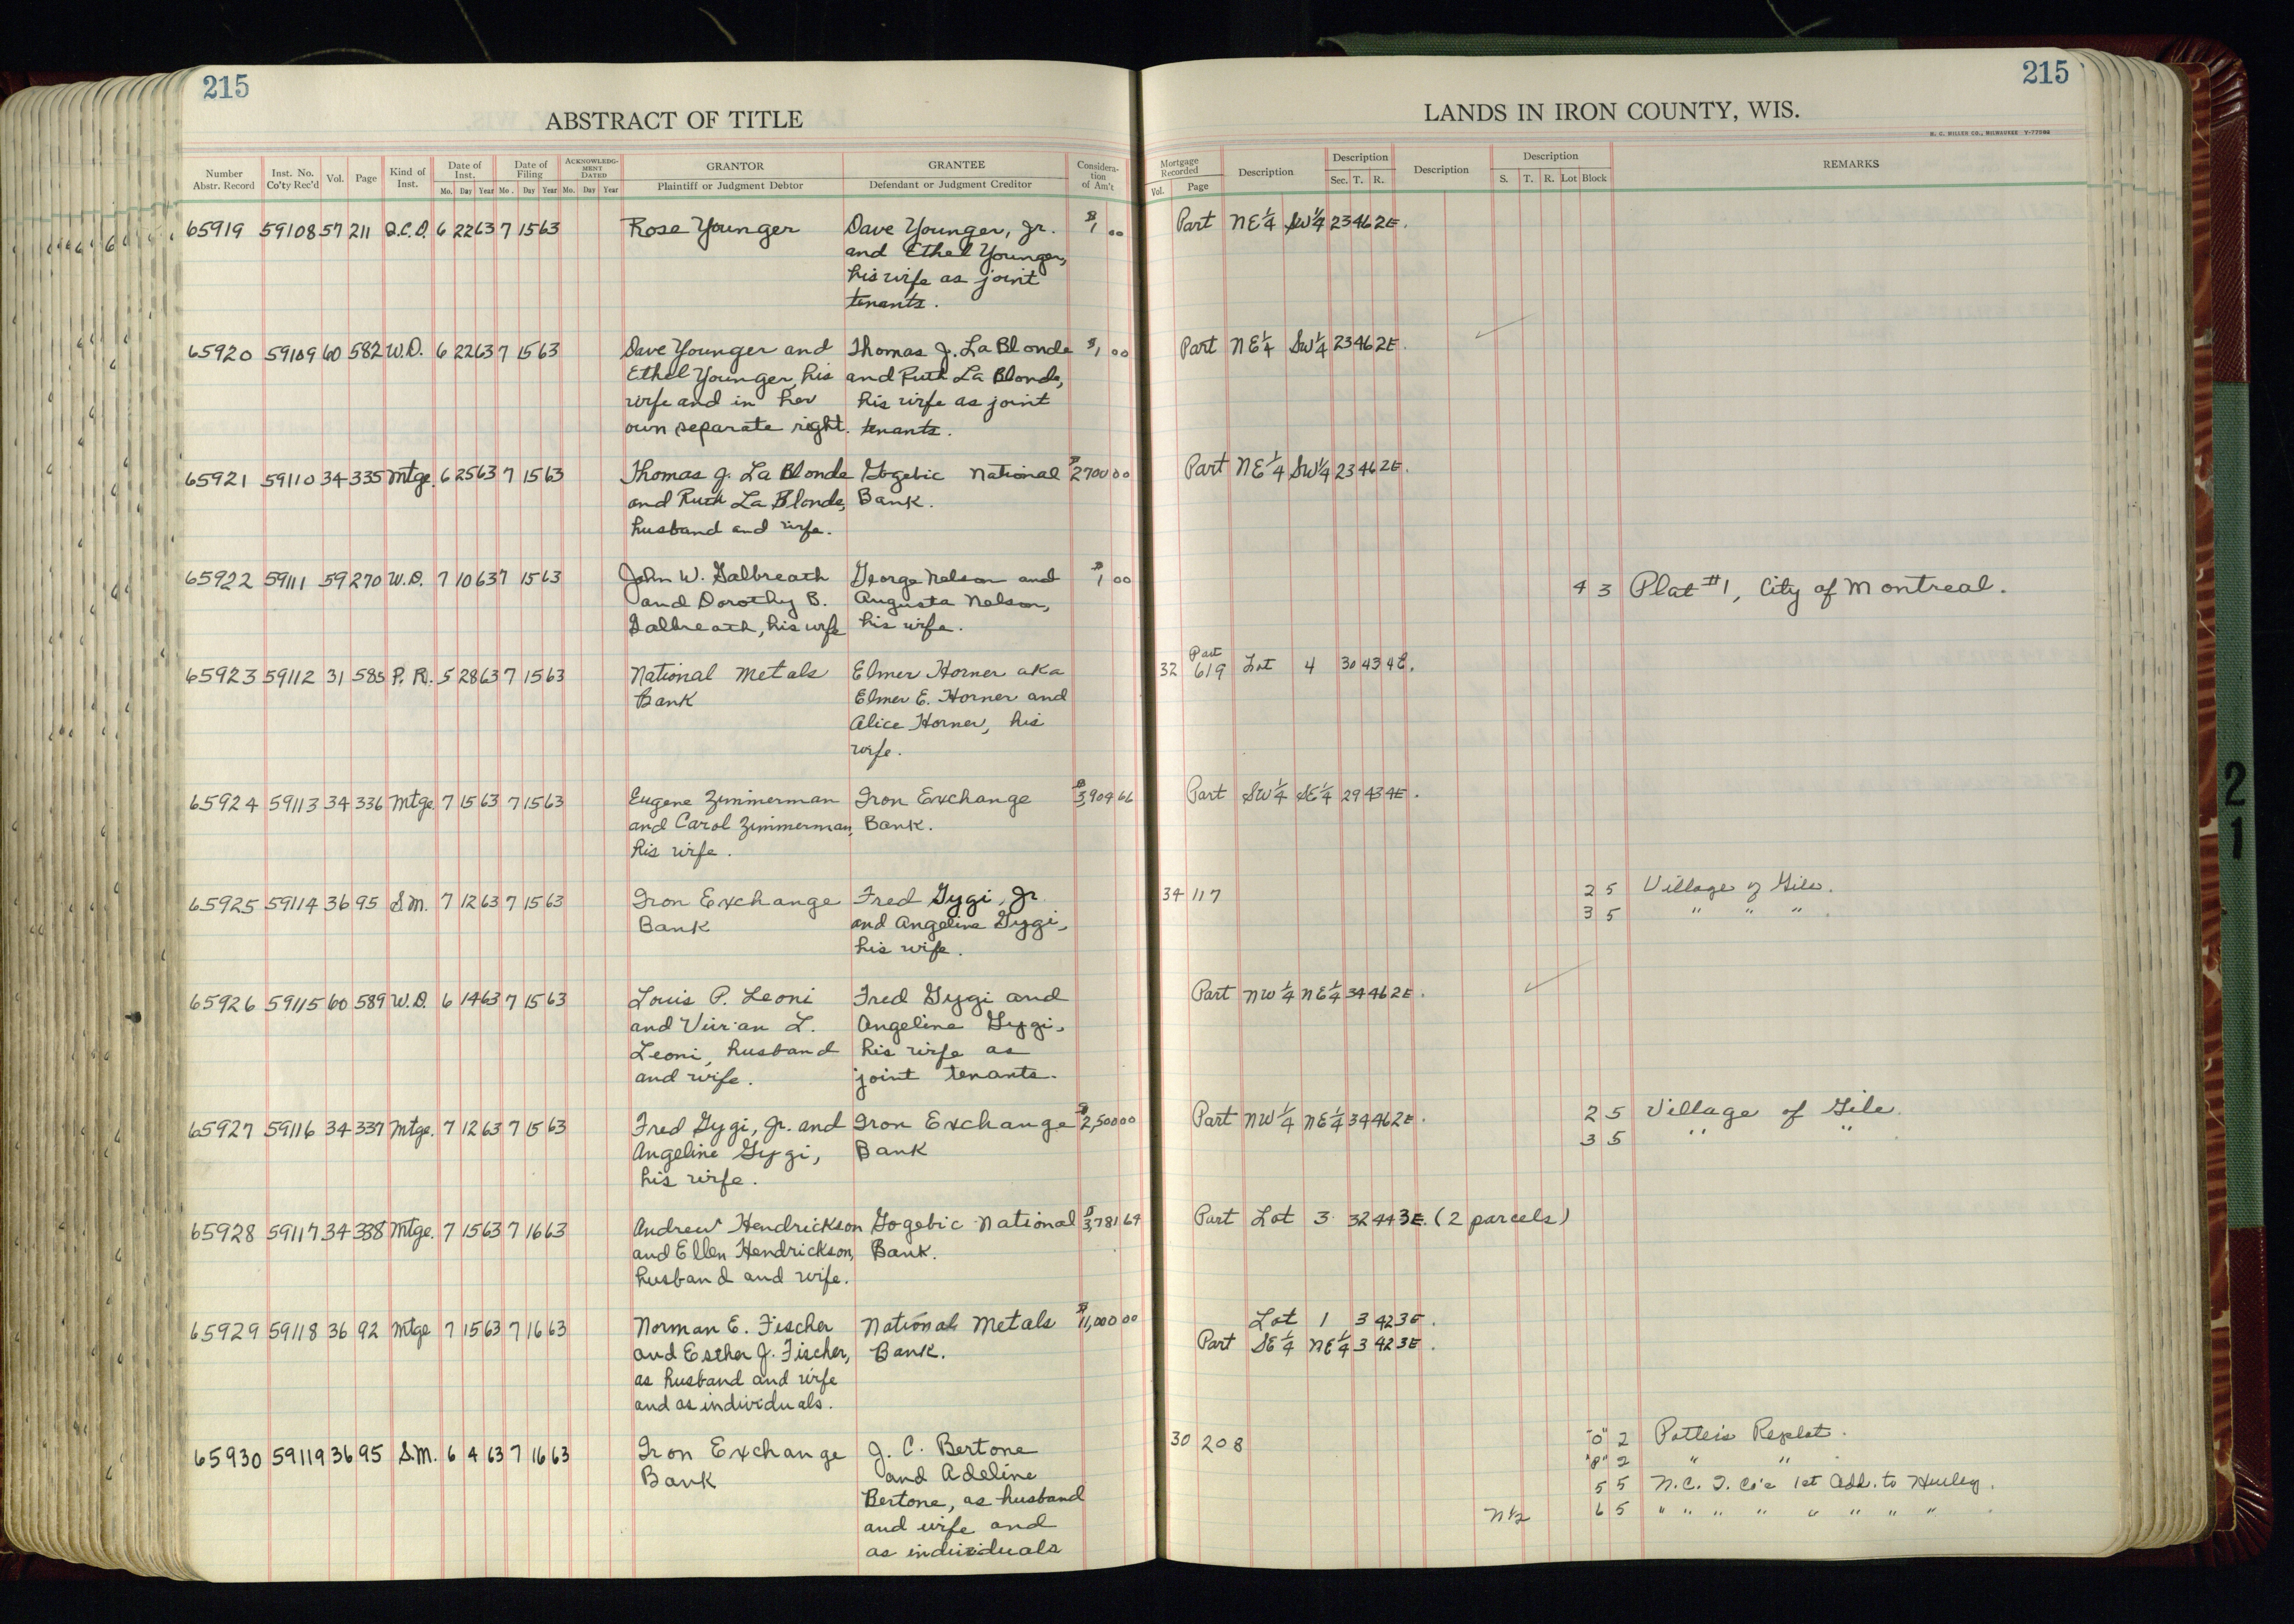 215
ABSTRACT OF TITLE
Number Abstr. Record | Inst. No. Co'ty Rec'd | Vol. | Page | Kind of Inst. | Date of Inst. Mo. Day Year | Date of Filing Mo. Day Year | ACKNOWLEDGMENT DATED Mo. Day Year | GRANTOR Plaintiff or Judgment Debtor | GRANTEE Defendant or Judgment Creditor | Consideration of Am't
65919 59108 57 211 Q.C.D. 6 22 63 7 15 63 Rose Younger Dave Younger, Jr. $1 00
and Ethel Younger,
his wife as joint
tenants.
65920 59109 60 582 W.D. 6 22 63 7 15 63 Dave Younger and Thomas J. La Blonde $1 00
Ethel Younger, his and Ruth La Blonde,
wife and in her his wife as joint
own separate right. tenants.
65921 59110 34 335 Mtge. 6 25 63 7 15 63 Thomas J. La Blonde Gogebic National $2700 00
and Ruth La Blonde, Bank.
husband and wife.
65922 59111 59 270 W.D. 7 10 63 7 15 63 John W. Galbreath George Nelson and $1 00
and Dorothy B. Augusta Nelson,
Galbreath, his wife his wife.
65923 59112 31 585 P.R. 5 28 63 7 15 63 National Metals Elmer Horner aka
Bank Elmer E. Horner and
Alice Horner, his
wife.
65924 59113 34 336 Mtge. 7 15 63 7 15 63 Eugene Zimmerman Iron Exchange $3,909 66
and Carol Zimmerman, Bank.
his wife.
65925 59114 36 95 S.M. 7 12 63 7 15 63 Iron Exchange Fred Gygi, Jr.
Bank and Angeline Gygi,
his wife.
65926 59115 60 589 W.D. 6 14 63 7 15 63 Louis P. Leoni Fred Gygi and
and Vivian L. Angeline Gygi,
Leoni, husband his wife as
and wife. joint tenants.
65927 59116 34 337 Mtge. 7 12 63 7 15 63 Fred Gygi, Jr. and Iron Exchange $2,500 00
Angeline Gygi, Bank
his wife.
65928 59117 34 338 Mtge. 7 15 63 7 16 63 Andrew Hendrickson Gogebic National $3,781 69
and Ellen Hendrickson, Bank.
husband and wife.
65929 59118 36 92 Mtge 7 15 63 7 16 63 Norman E. Fischer National Metals $11,000 00
and Esther J. Fischer, Bank.
as husband and wife
and as individuals.
65930 59119 36 95 S.M. 6 4 63 7 16 63 Iron Exchange J. C. Bertone
Bank and Adeline
Bertone, as husband
and wife and
as individuals
215
LANDS IN IRON COUNTY, WIS.
H. C. MILLER CO., MILWAUKEE
Mortgage Recorded Vol. Page | Description | Description Sec. T. R. | Description | Description S. T. R. Lot Block | REMARKS
Part NE 1/4 SW 1/4 23 46 2E.
Part NE 1/4 SW 1/4 23 46 2E.
Part NE 1/4 SW 1/4 23 46 2E.
4 3 Plat #1, City of Montreal.
Part
32 619 Lot 4 30 43 4E.
Part SW 1/4 SE 1/4 29 43 4E.
34 117 2 5 Village of Gile.
3 5 " " "
Part NW 1/4 NE 1/4 34 46 2E.
Part NW 1/4 NE 1/4 34 46 2E. 2 5 Village of Gile.
3 5 " "
Part Lot 3 32 44 3E. (2 parcels)
Lot 1 3 42 3E.
Part SE 1/4 NE 1/4 3 42 3E.
30 208 "O" 2 Potter's Replat.
"P" 2 " "
5 5 N.C.I. Co's 1st Add. to Hurley.
N 1/2 6 5 " " " " " " " "
21